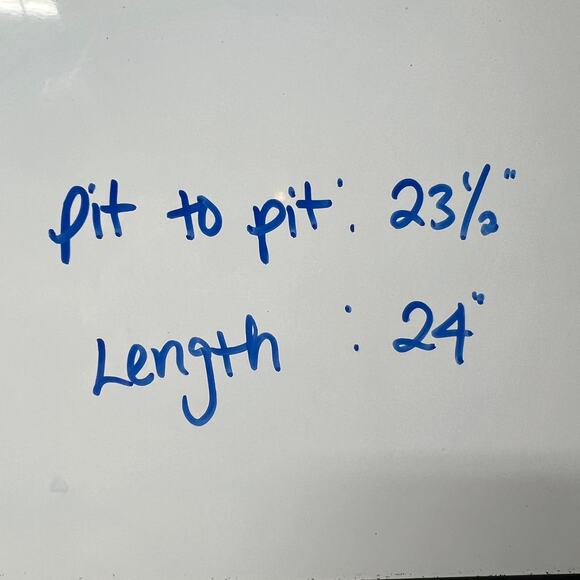 pit to pit: 23 1/2"
Length : 24"